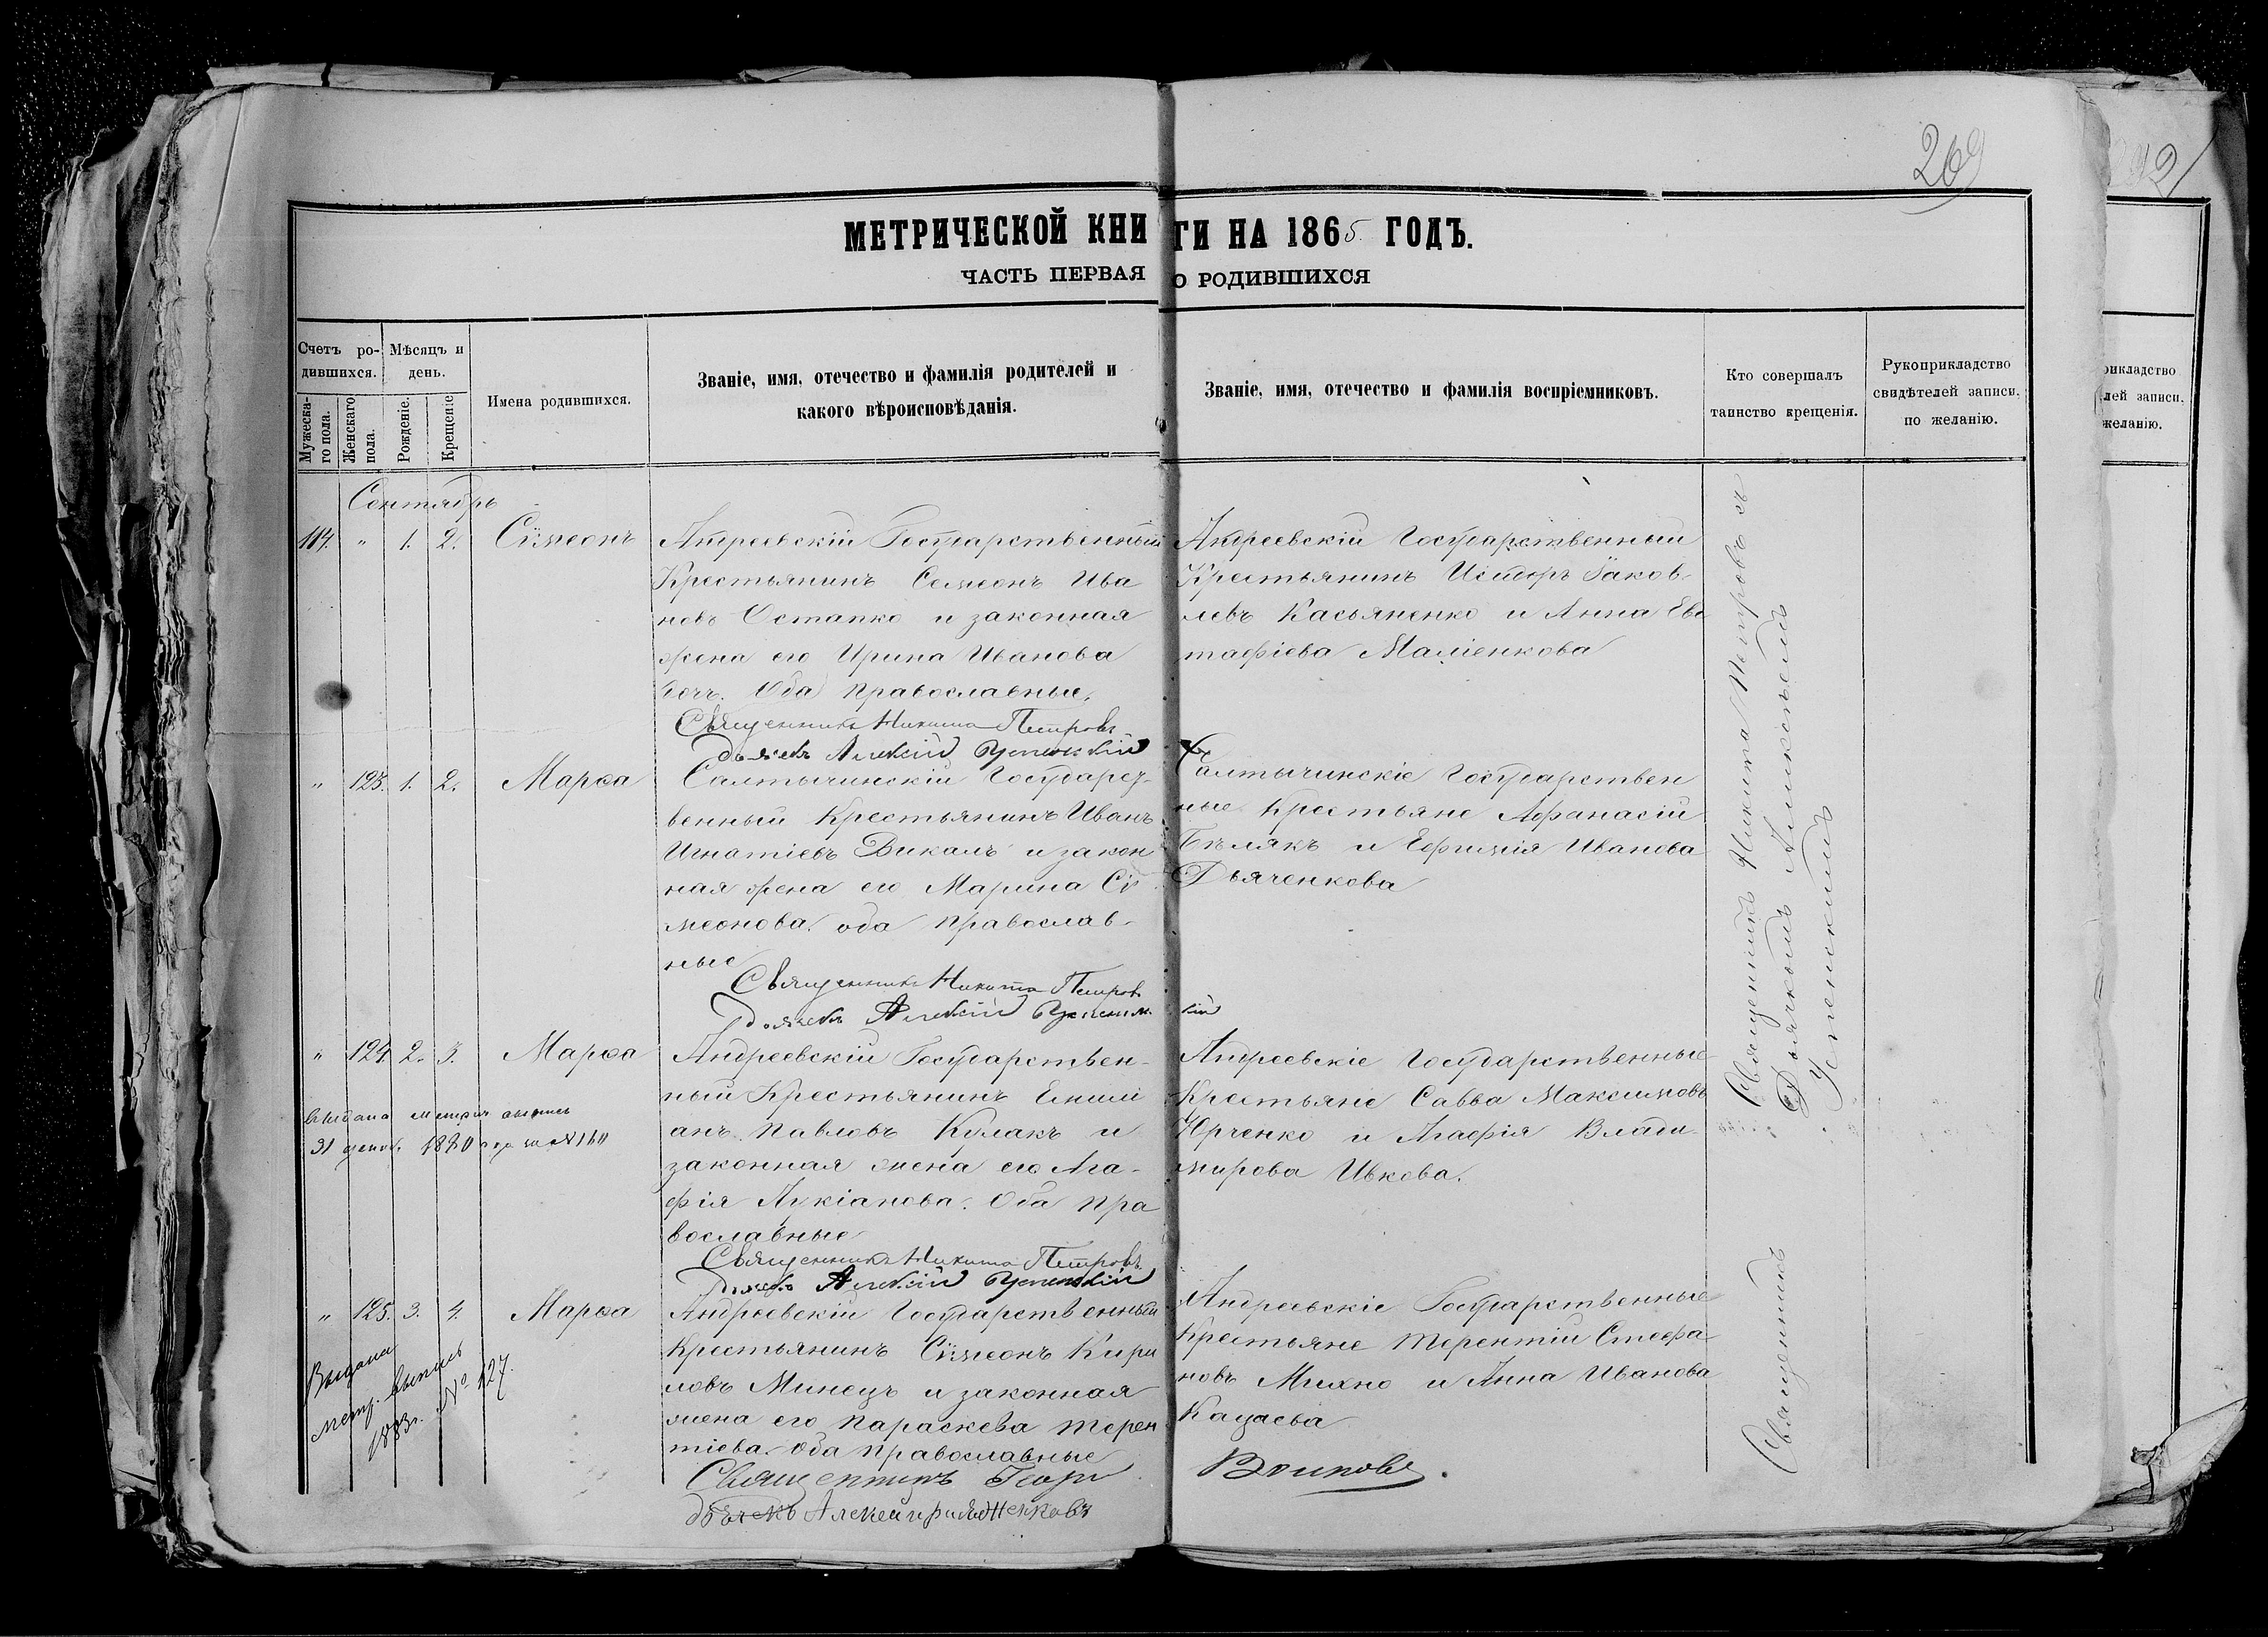 269
МЕТРИЧЕСКОЙ КНИГИ НА 1865 ГОДЪ.
ЧАСТЬ ПЕРВАЯ О РОДИВШИХСЯ
Счетъ ро-
дившихся.
Мужеска-
го пола.
Женскаго
пола.
Мѣсяцъ и
день.
Рожденіе.
Крещеніе
Имена родившихся.
Званіе, имя, отечество и фамилія родителей и
какого вѣроисповѣданія.
Званіе, имя, отечество и фамилія воспріемниковъ.
Кто совершалъ
таинство крещенія.
Рукоприкладство
свидѣтелей записи,
по желанію.
Сентябрь
114. " 1. 2. Сѵмеонъ
Андреевскій Государственный
Крестьянинъ Семеонъ Ива
новъ Остапко и законная
жена его Ирина Иванова
Оба православные.
Священникъ Никита Петровъ
дьячекъ Алексій Успенскій
Андреевскій Государственный
Крестьянинъ Исидоръ Іаков-
левъ Касьяненко и Анна Евс
тафіева
" 123. 1. 2. Марѳа
Салтычинскій Государст-
венный Крестьянинъ Иванъ
Игнатіевъ Дикалъ и закон
ная жена его Марина Сѵ
меонова. оба православ-
ные
Священникъ Никита Петровъ
дьячекъ Алексій Успенскій
Салтычинскіе Государствен
ные Крестьяне Афанасій
Бѣлякъ и Ефимія Иванова
Дьяченкова
" 124 2. 3. Марѳа
Выдана метрич выпись
31 1880 года за №160
Андреевскій Государствен-
ный Крестьянинъ Емили
анъ Павловъ Кулакъ и
законная жена его Ага-
фія Лукіанова. Оба пра
вославные
Священникъ Никита Петровъ
дьячекъ Алексій Успенскій
Андреевскіе Государственные
Крестьяне Савва Максимовъ
Юрченко и Агафія Влади-
мирова Ивкова.
" 125. 3. 4. Марѳа
Выдана
метр. выпись
1883г. № 127.
Андреевскій Государственный
Крестьянинъ Сѵмеонъ Кири
ловъ Минецъ и законная
жена его Параскева Терен
тіева. Оба православные
Священникъ Георг
дьячекъ Алексей
Андреевскіе Государственные
Крестьяне Терентій Стефа
новъ Михно и Анна Иванова
Кацаева
Воиновъ.
Священникъ Никита Петровъ съ
Дьячкомъ Алексѣемъ
Успенскимъ
Священникъ
рикладство
лей записи,
желанію.